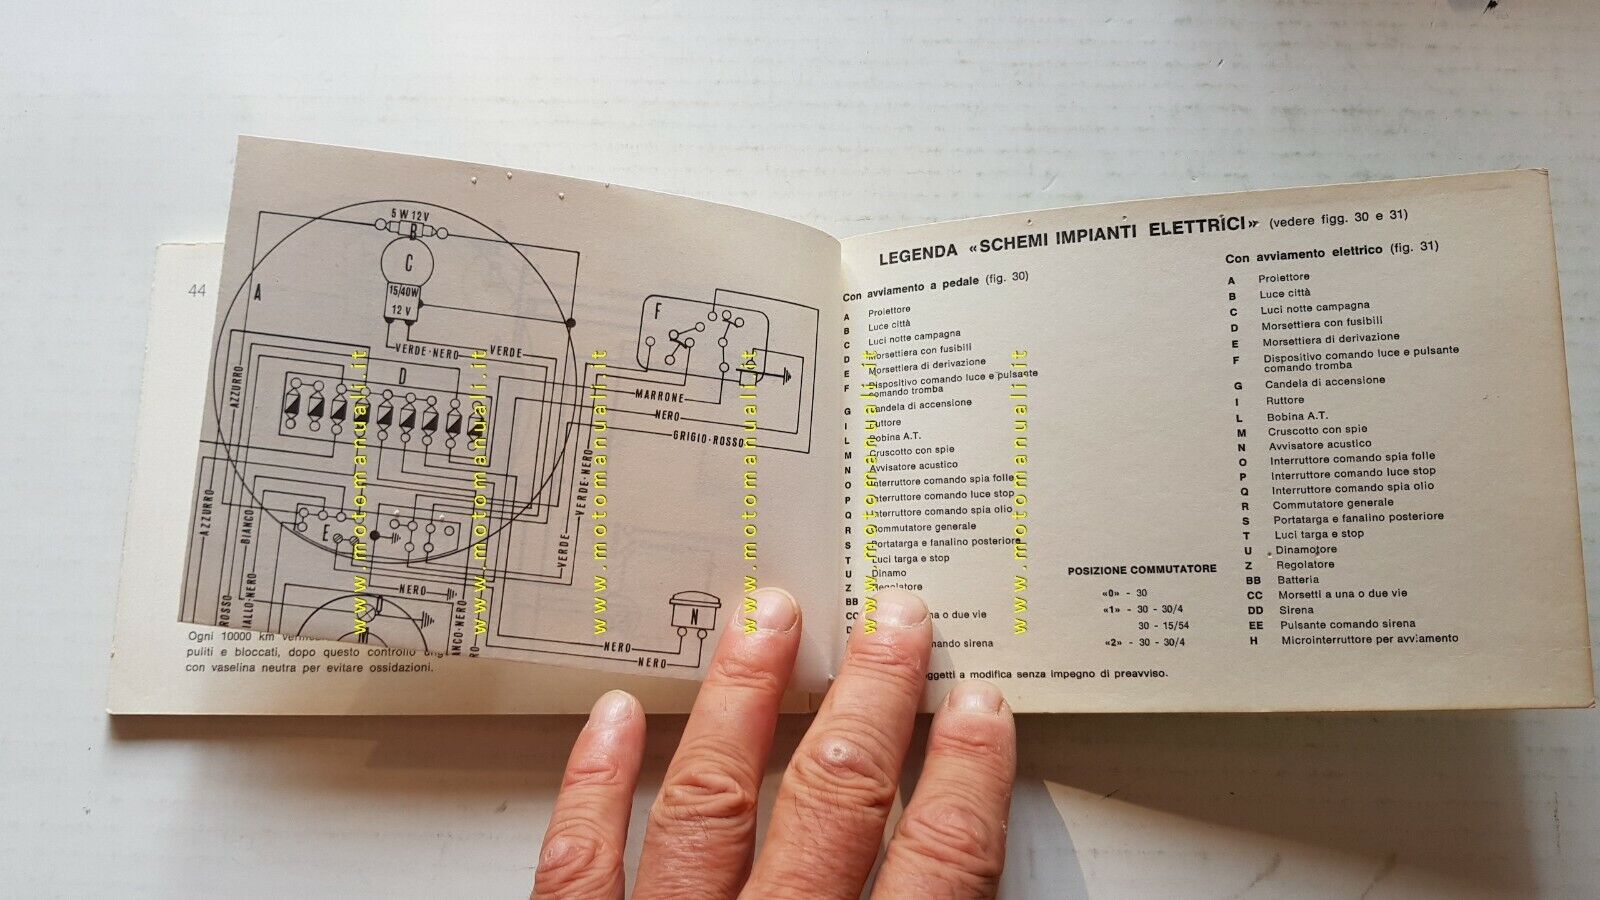 44
5 W 12 V
B
C
15/40W
12 V
A
VERDE-NERO
VERDE
D
AZZURRO
F
MARRONE
NERO
GRIGIO-ROSSO
VERDE-NERO
AZZURRO
BIANCO
E
VERDE
NERO
ROSSO
GIALLO-NERO
BIANCO-NERO
N
NERO
NERO
Ogni 10000 km
puliti e bloccati, dopo questo controllo
con vaselina neutra per evitare ossidazioni.
LEGENDA «SCHEMI IMPIANTI ELETTRICI» (vedere figg. 30 e 31)
Con avviamento a pedale (fig. 30)
A Proiettore
B Luce città
C Luci notte campagna
D Morsettiera con fusibili
E Morsettiera di derivazione
F Dispositivo comando luce e pulsante
comando tromba
G Candela di accensione
I Ruttore
L Bobina A.T.
M Cruscotto con spie
N Avvisatore acustico
O Interruttore comando spia folle
P Interruttore comando luce stop
Q Interruttore comando spia olio
R Commutatore generale
S Portatarga e fanalino posteriore
T Luci targa e stop
U Dinamo
Z Regolatore
BB
CC una o due vie
D
mando sirena
oggetti a modifica senza impegno di preavviso.
POSIZIONE COMMUTATORE
«0» - 30
«1» - 30 - 30/4
30 - 15/54
«2» - 30 - 30/4
Con avviamento elettrico (fig. 31)
A Proiettore
B Luce città
C Luci notte campagna
D Morsettiera con fusibili
E Morsettiera di derivazione
F Dispositivo comando luce e pulsante
comando tromba
G Candela di accensione
I Ruttore
L Bobina A.T.
M Cruscotto con spie
N Avvisatore acustico
O Interruttore comando spia folle
P Interruttore comando luce stop
Q Interruttore comando spia olio
R Commutatore generale
S Portatarga e fanalino posteriore
T Luci targa e stop
U Dinamotore
Z Regolatore
BB Batteria
CC Morsetti a una o due vie
DD Sirena
EE Pulsante comando sirena
H Microinterruttore per avviamento
www.motomanuali.it
www.motomanuali.it
www.motomanuali.it
www.motomanuali.it
www.motomanuali.it
www.motomanuali.it